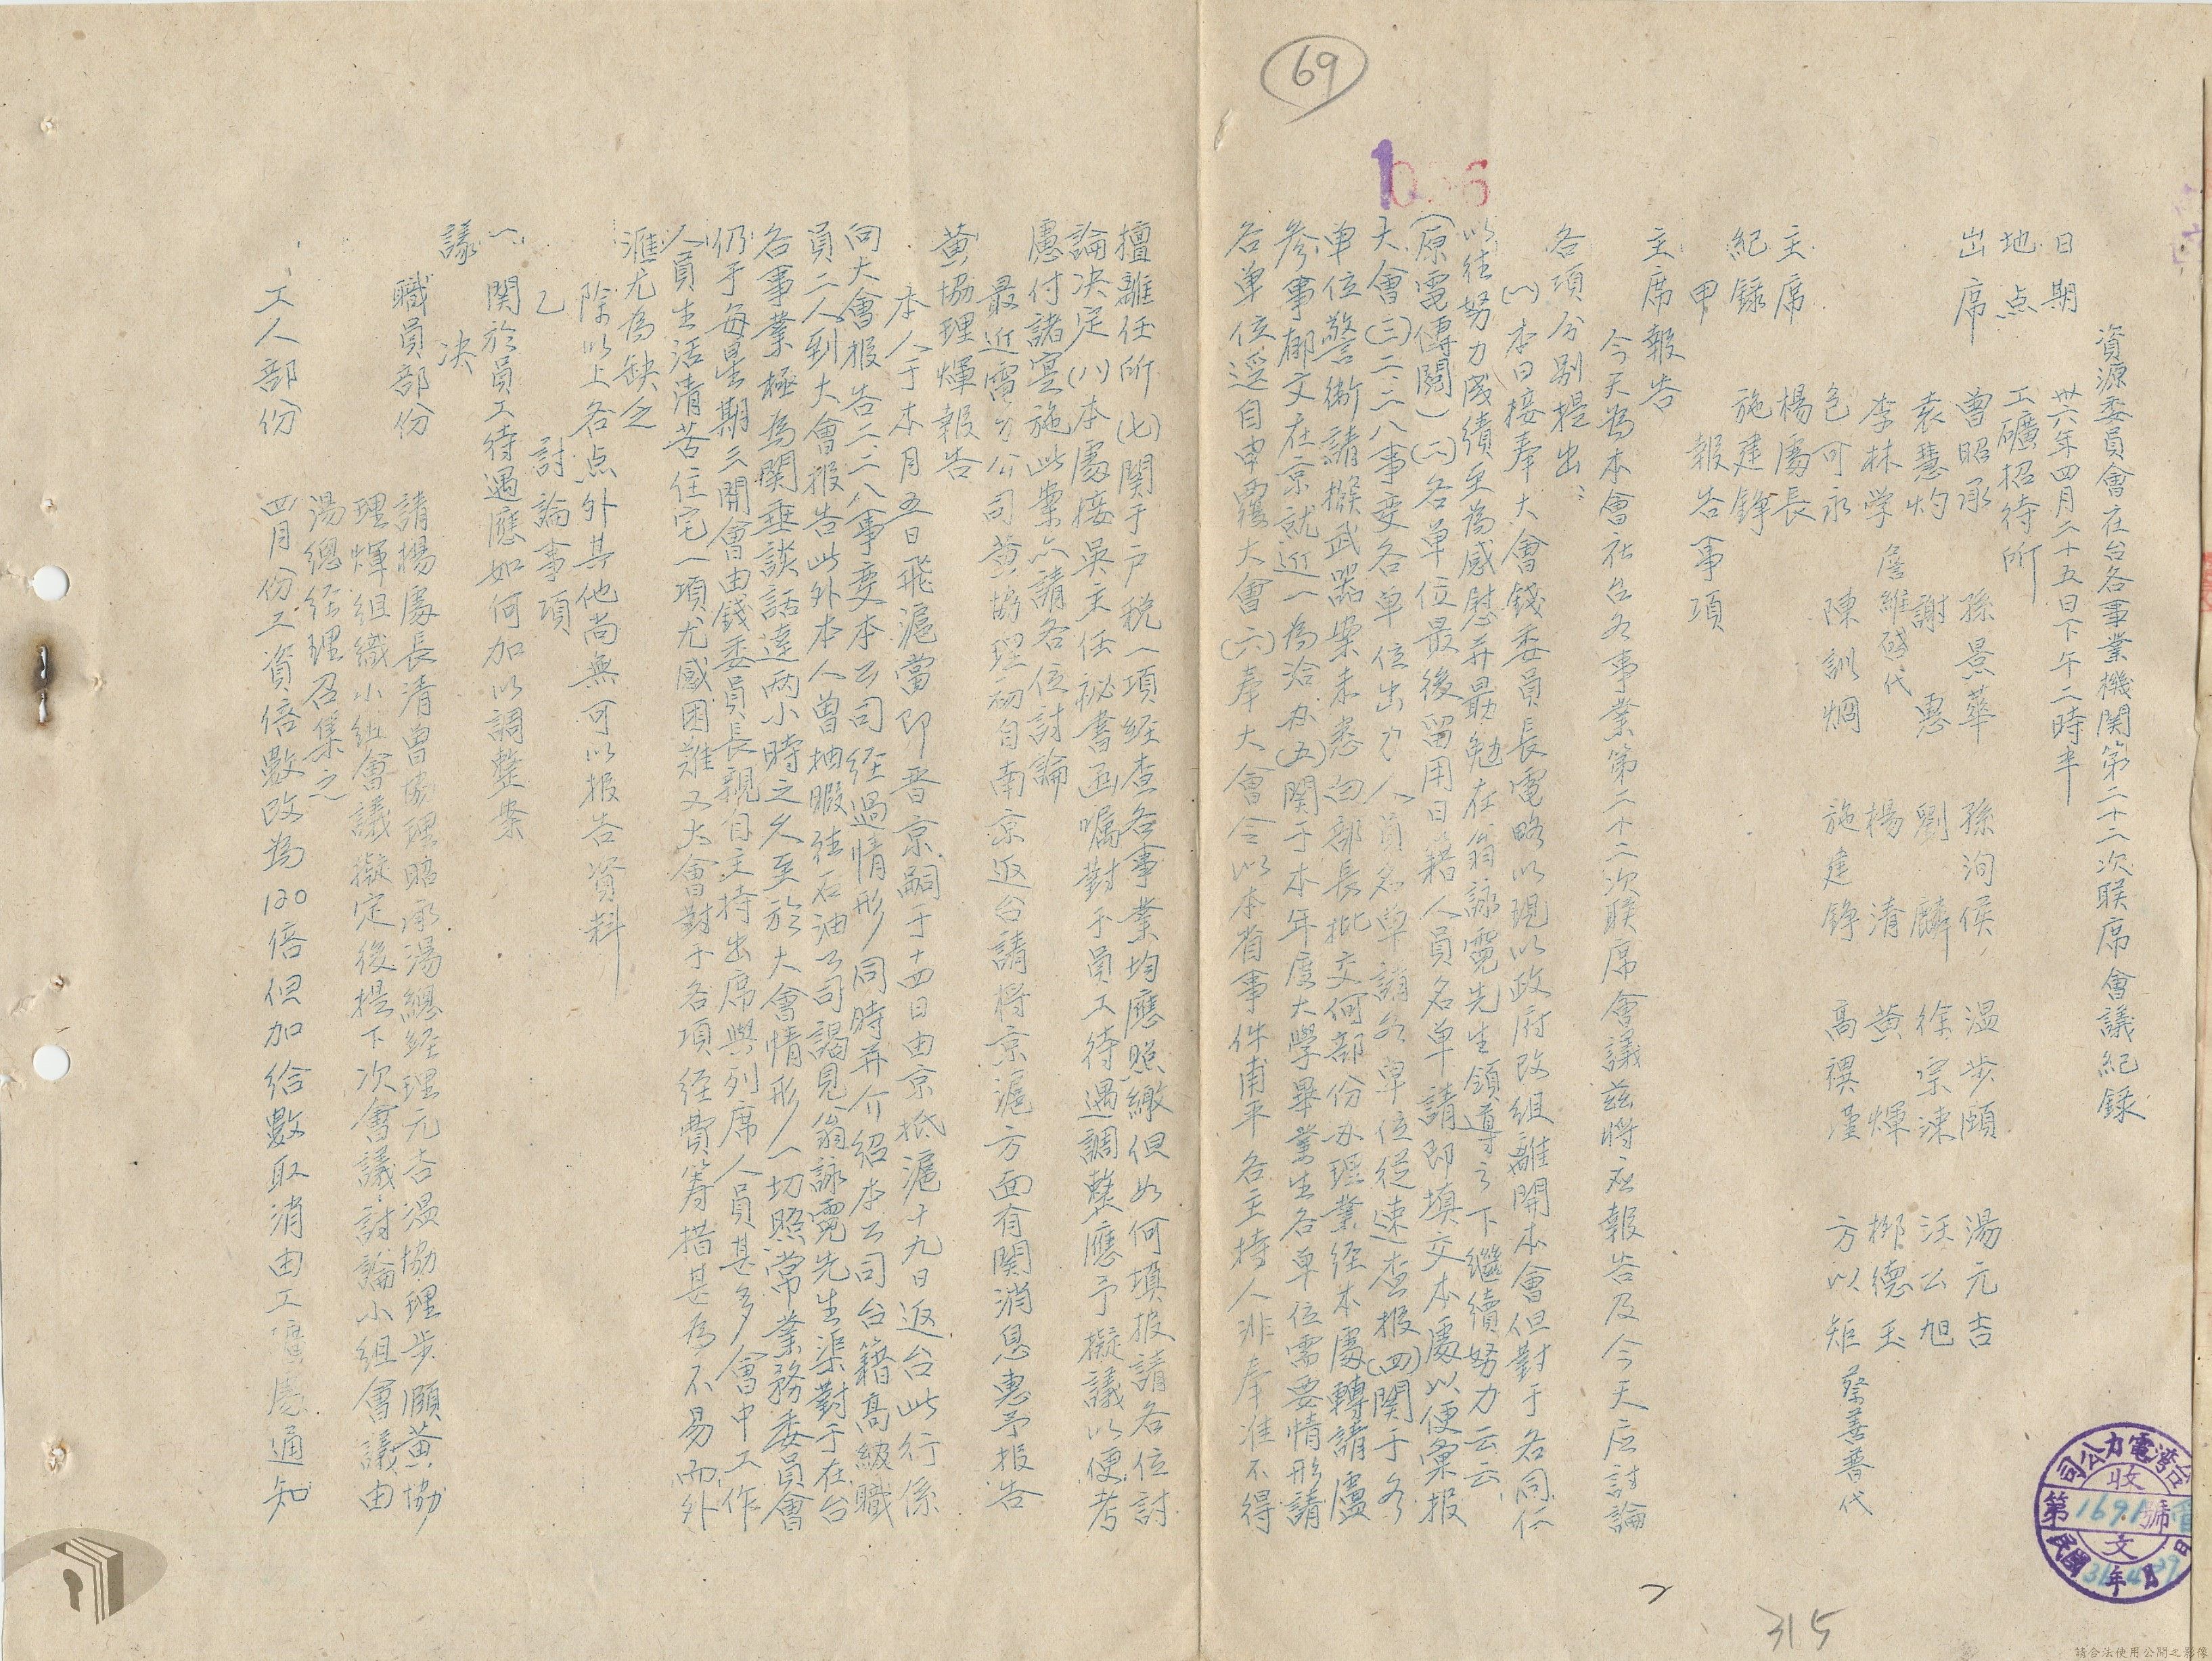 資源委員會在台各事業機関第二十二次联席會議紀録
日期 卅六年四月二十五日下午二時半
地点 工礦招待所
出席 曾昭承 孫景華 孫洵侯 温步頤 湯元吉
袁慧灼 謝惠 劉麟 徐宗涑 汪公旭
李林学 詹維礎代 楊清 黄煇 柳德玉
包可永 陳訓烱 施建錚 高禩瑾 方以矩 蔡善普代
主席 楊處長
紀録 施建錚
甲 報告事項
主席報告
今天為本會社台各事業第二十二次联席會議茲將應報告及今天应討論
各項分別提出：
(一)本日接奉大會錢委員長電略以現以政府改組離開本會但對于各同仁
以往努力成績至為感慰并勗勉在翁詠霓先生領導之下継續努力云云
(原電傳閲)(二)各單位最後留用日籍人員名单請即填交本處以便彙报
大會(三)二二八事变各单位出力人員名单請各单位從速查报(四)関于各
单位警衛請撥武器案未悉白部長批交何部份办理業经本處轉請盧
参事郁文在京就近一為洽办(五)関于本年度大學畢業生各单位需要情形請
各单位逕自电覆大會(六)奉大會令以本省事件甫平各主持人非奉准不得
擅離任所(七)関于户税一項経查各事業均應照繳但如何填报請各位討
論决定(八)本處接吳主任祕書函嘱對于員工待遇調整應予擬議以便考
慮付諸寔施此案亦請各位討論
最近電力公司黄協理初自南京返台請将京滬方面有関消息惠予报告
黄協理煇報告
本人于本月五日飛滬當即晋京嗣于十四日由京抵滬十九日返台此行係
向大會报告二二八事变本公司経過情形同時并介紹本公司台籍高級職
員二人到大會報告此外本人曾抽暇往石油公司謁見翁詠霓先生渠對于在台
各事業極為関垂談話達两小時之久至於大會情形一切照常業務委員會
仍于每星期三開會由錢委員長親自主持出席與列席人員甚多會中工作
人員生活清苦住宅一項尤感困难又大會對于各項经費筹措甚為不易而外
滙尤為缺乏
除以上各点外其他尚無可以报告資料
乙 討論事項
一、関於員工待遇應如何加以調整案
議决
職員部份 請楊處長清曾協理昭承湯總経理元吉温協理步頤黄協
理煇組織小組會議擬定後提下次會議討論小組會議由
湯總経理召集之
工人部份 四月份工資倍數改為120倍但加给數取消由工礦處通知
69
1036
315
台灣電力公司
收文
第1691號
民國36年4月29日
請合法使用公開之影像